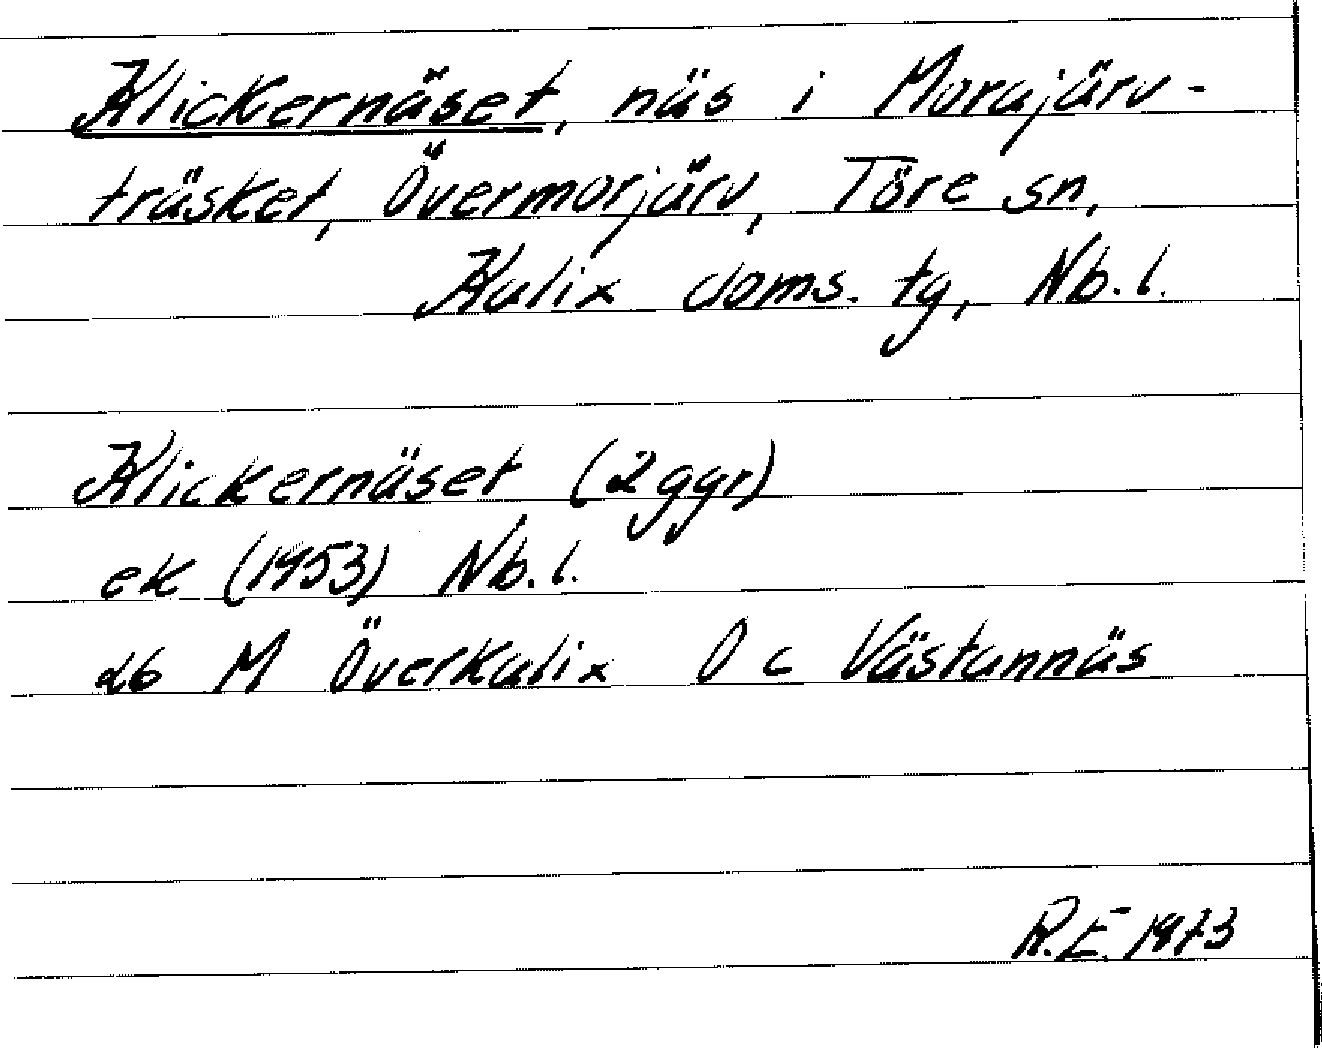 Klickernäset, näs i Morajärv-
träsket, Övermorjärv, Töre sn,
Kalix doms. tg, Nb. l.
Klickernäset (2 ggr)
ek (1953) Nb. l.
26 M Överkalix 0 c Västannäs
R.E. 1973